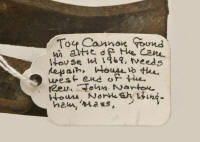 Toy Cannon found
in attic of the Cane
House in 1969. Needs
repair. House is the
west end of the
Rev. John Norton
House. North St, Hing-
ham, Mass.